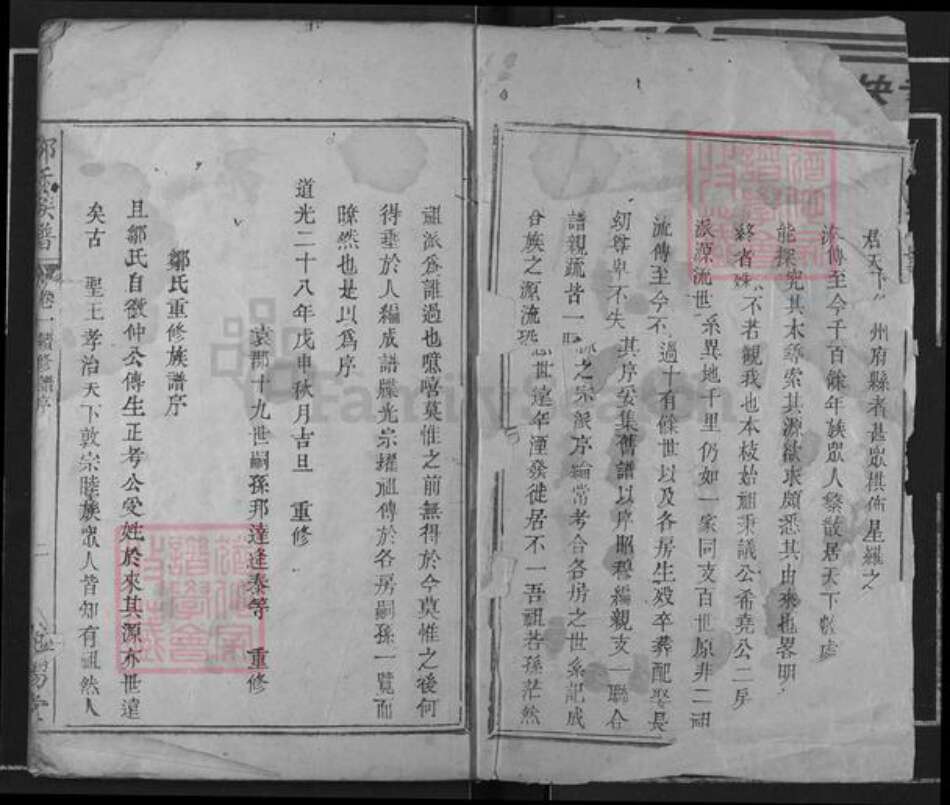 君天下　州府縣者甚眾棋佈星羅之
流傳至今千百餘年族眾人繁散居天下
能探究其本尋索其源欲求頗悉其由來也畧明
終者　不若觀我也本枝始祖秉議公希堯公二房
派源流世系異地千里仍如一家同支百世原非二祖
流傳至今不過十有餘世以及各房生歿卒葬配娶長
幼尊卑不失其序妥集舊譜以序昭穆編親支一聯合
譜親疏皆一　之宗派序綸常考合各房之世系記成
合族之源流　世遠年湮發徙居不一吾祖若孫茫然
祖派為誰過也噫嘻莫惟之前無得於今莫惟之後何
得垂於人編成譜牒光宗耀祖傳於各房嗣孫一覽而
瞭然也是以為序
道光二十八年戊申秋月吉旦　重修
袁郡十九世嗣孫邦達逢泰等　重修
鄒氏重修族譜序
且鄒氏自微仲公傳生正考公受姓於來其源亦世遠
矣古　聖王孝治天下敦宗睦族眾人皆知有祖然人
鄒氏族譜　卷一　續修譜序　二